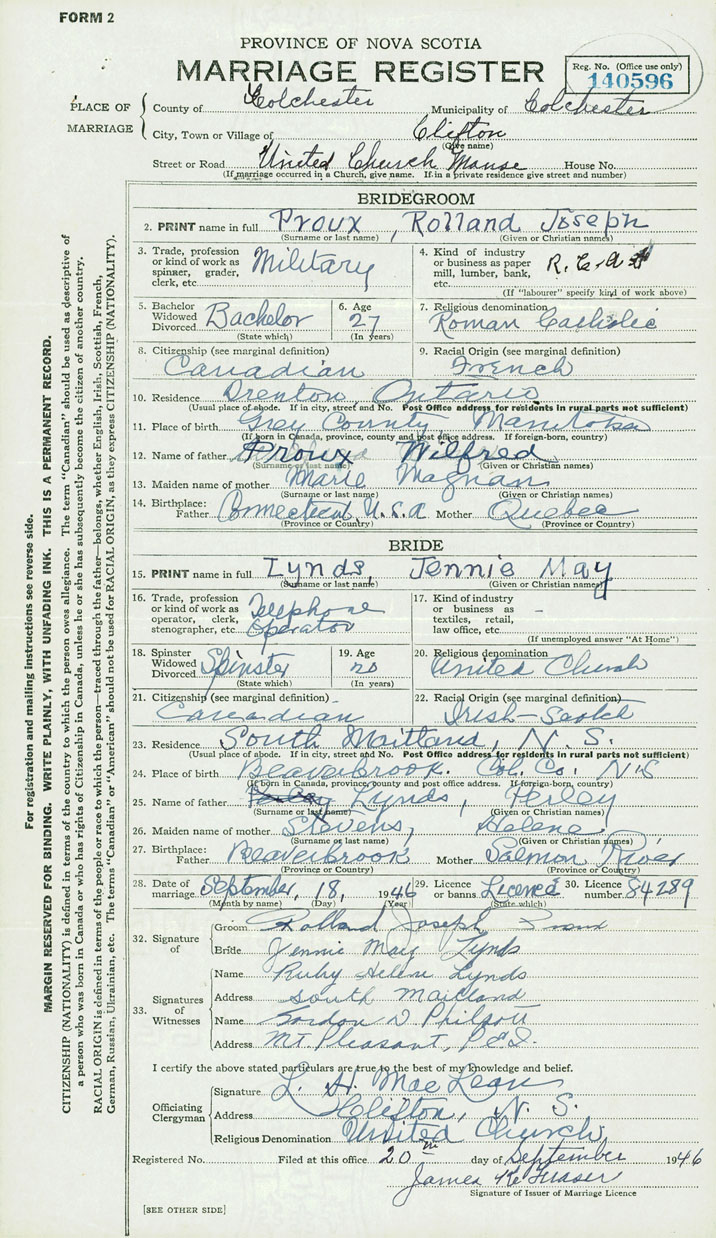 FORM 2
PROVINCE OF NOVA SCOTIA
MARRIAGE REGISTER
Reg. No. (Office use only)
140596
PLACE OF MARRIAGE
County of Colchester Municipality of Colchester
City, Town or Village of Clifton
(Give name)
Street or Road United Church Manse House No.
(If marriage occurred in a Church, give name. If in a private residence give street and number)
BRIDEGROOM
2. PRINT name in full Proux, Rolland Joseph
(Surname or last name) (Given or Christian names)
3. Trade, profession or kind of work as spinner, grader, clerk, etc. Military
4. Kind of industry or business as paper mill, lumber, bank, etc. R.C.A.
(If "labourer" specify kind of work above)
5. Bachelor Widowed Divorced Bachelor
(State which)
6. Age 27
(In years)
7. Religious denomination Roman Catholic
8. Citizenship (see marginal definition) Canadian
9. Racial Origin (see marginal definition) French
10. Residence Drenton, Ontario
(Usual place of abode. If in city, street and No. Post Office address for residents in rural parts not sufficient)
11. Place of birth Grey County Manitoba
(If born in Canada, province, county and post office address. If foreign-born, country)
12. Name of father Proux Wilfred
(Surname or last name) (Given or Christian names)
13. Maiden name of mother Marie Magnan
(Surname or last name) (Given or Christian names)
14. Birthplace: Father Connecticut, U.S.A Mother Quebec
(Province or Country) (Province or Country)
BRIDE
15. PRINT name in full Lynds, Jennie May
(Surname or last name) (Given or Christian names)
16. Trade, profession or kind of work as operator, clerk, stenographer, etc. Telephone Operator
17. Kind of industry or business as textiles, retail, law office, etc. -
(If unemployed answer "At Home")
18. Spinster Widowed Divorced Spinster
(State which)
19. Age 20
(In years)
20. Religious denomination United Church
21. Citizenship (see marginal definition) Canadian
22. Racial Origin (see marginal definition) Irish-Scotch
23. Residence South Maitland, N.S.
(Usual place of abode. If in city, street and No. Post Office address for residents in rural parts not sufficient)
24. Place of birth Beaverbrook. Col. Co. N.S
(If born in Canada, province, county and post office address. If foreign-born, country)
25. Name of father Lynds, Perley
(Surname or last name) (Given or Christian names)
26. Maiden name of mother Stevens, Helena
(Surname or last name) (Given or Christian names)
27. Birthplace: Father Beaverbrook Mother Salmon River
(Province or Country) (Province or Country)
28. Date of marriage September, 18, 1946
(Month by name) (Day) (Year)
29. Licence or banns Licence
(State which)
30. Licence number 84289
32. Signature of
Groom Rolland Joseph Proux
Bride Jennie May Lynds
33. Signatures of Witnesses
Name Ruby Helene Lynds
Address South Maitland
Name Gordon D Philpott
Address Mt Pleasant, P.E.I.
I certify the above stated particulars are true to the best of my knowledge and belief.
Officiating Clergyman
Signature L. H. MacLean
Address Clifton, N. S.
Religious Denomination United Church
Registered No. Filed at this office 20th day of September 1946
James K. Fraser
Signature of Issuer of Marriage Licence
[SEE OTHER SIDE]
For registration and mailing instructions see reverse side.
MARGIN RESERVED FOR BINDING. WRITE PLAINLY, WITH UNFADING INK. THIS IS A PERMANENT RECORD.
CITIZENSHIP (NATIONALITY) is defined in terms of the country to which the person owes allegiance. The term "Canadian" should be used as descriptive of
a person who was born in Canada or who has rights of Citizenship in Canada, unless he or she has subsequently become the citizen of another country.
RACIAL ORIGIN is defined in terms of the people or race to which the person—traced through the father—belongs, whether English, Irish, Scottish, French,
German, Russian, Ukrainian, etc. The terms "Canadian" or "American" should not be used for RACIAL ORIGIN, as they express CITIZENSHIP (NATIONALITY).